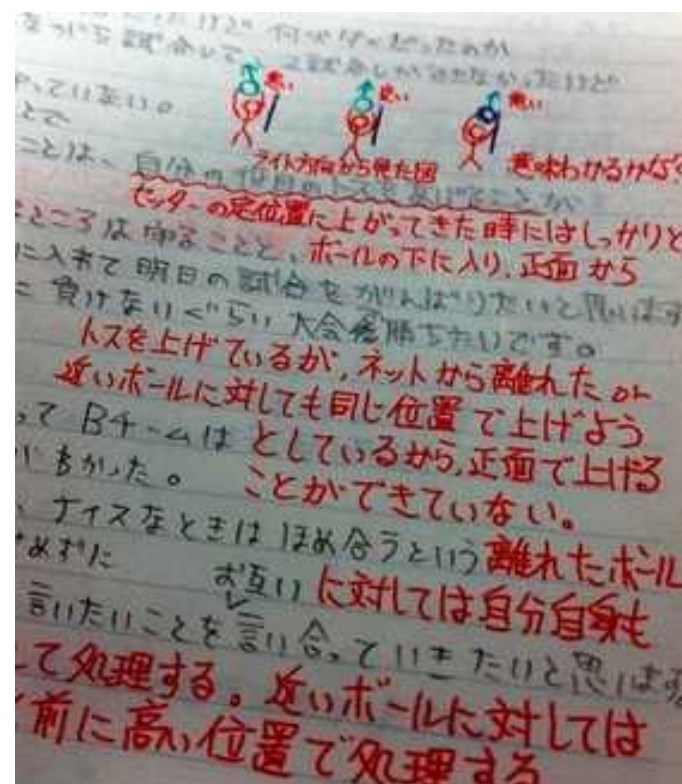 つづき試合して、2試合しか
やっていない。
悪い 良い 悪い
ライト方向から見た図 意味わかるかな?
ことは、自分の
セッターの定位置に上がってきた時にはしっかりと
ところは守ることと、ボールの下に入り、正面から
に入れて明日の試合をがんばりたいと思います
に負けないぐらい大会勝ちたいです。
トスを上げているが、ネットから離れた or
近いボールに対しても同じ位置で上げよう
って Bチームは としているから、正面で上げる
多かった。 ことができていない。
、ナイスなときはほめ合うという 離れたボール
お互い に対しては自分自身も
言いたいことを言い合っていきたいと思います
して処理する。近いボールに対しては
前に高い位置で処理する